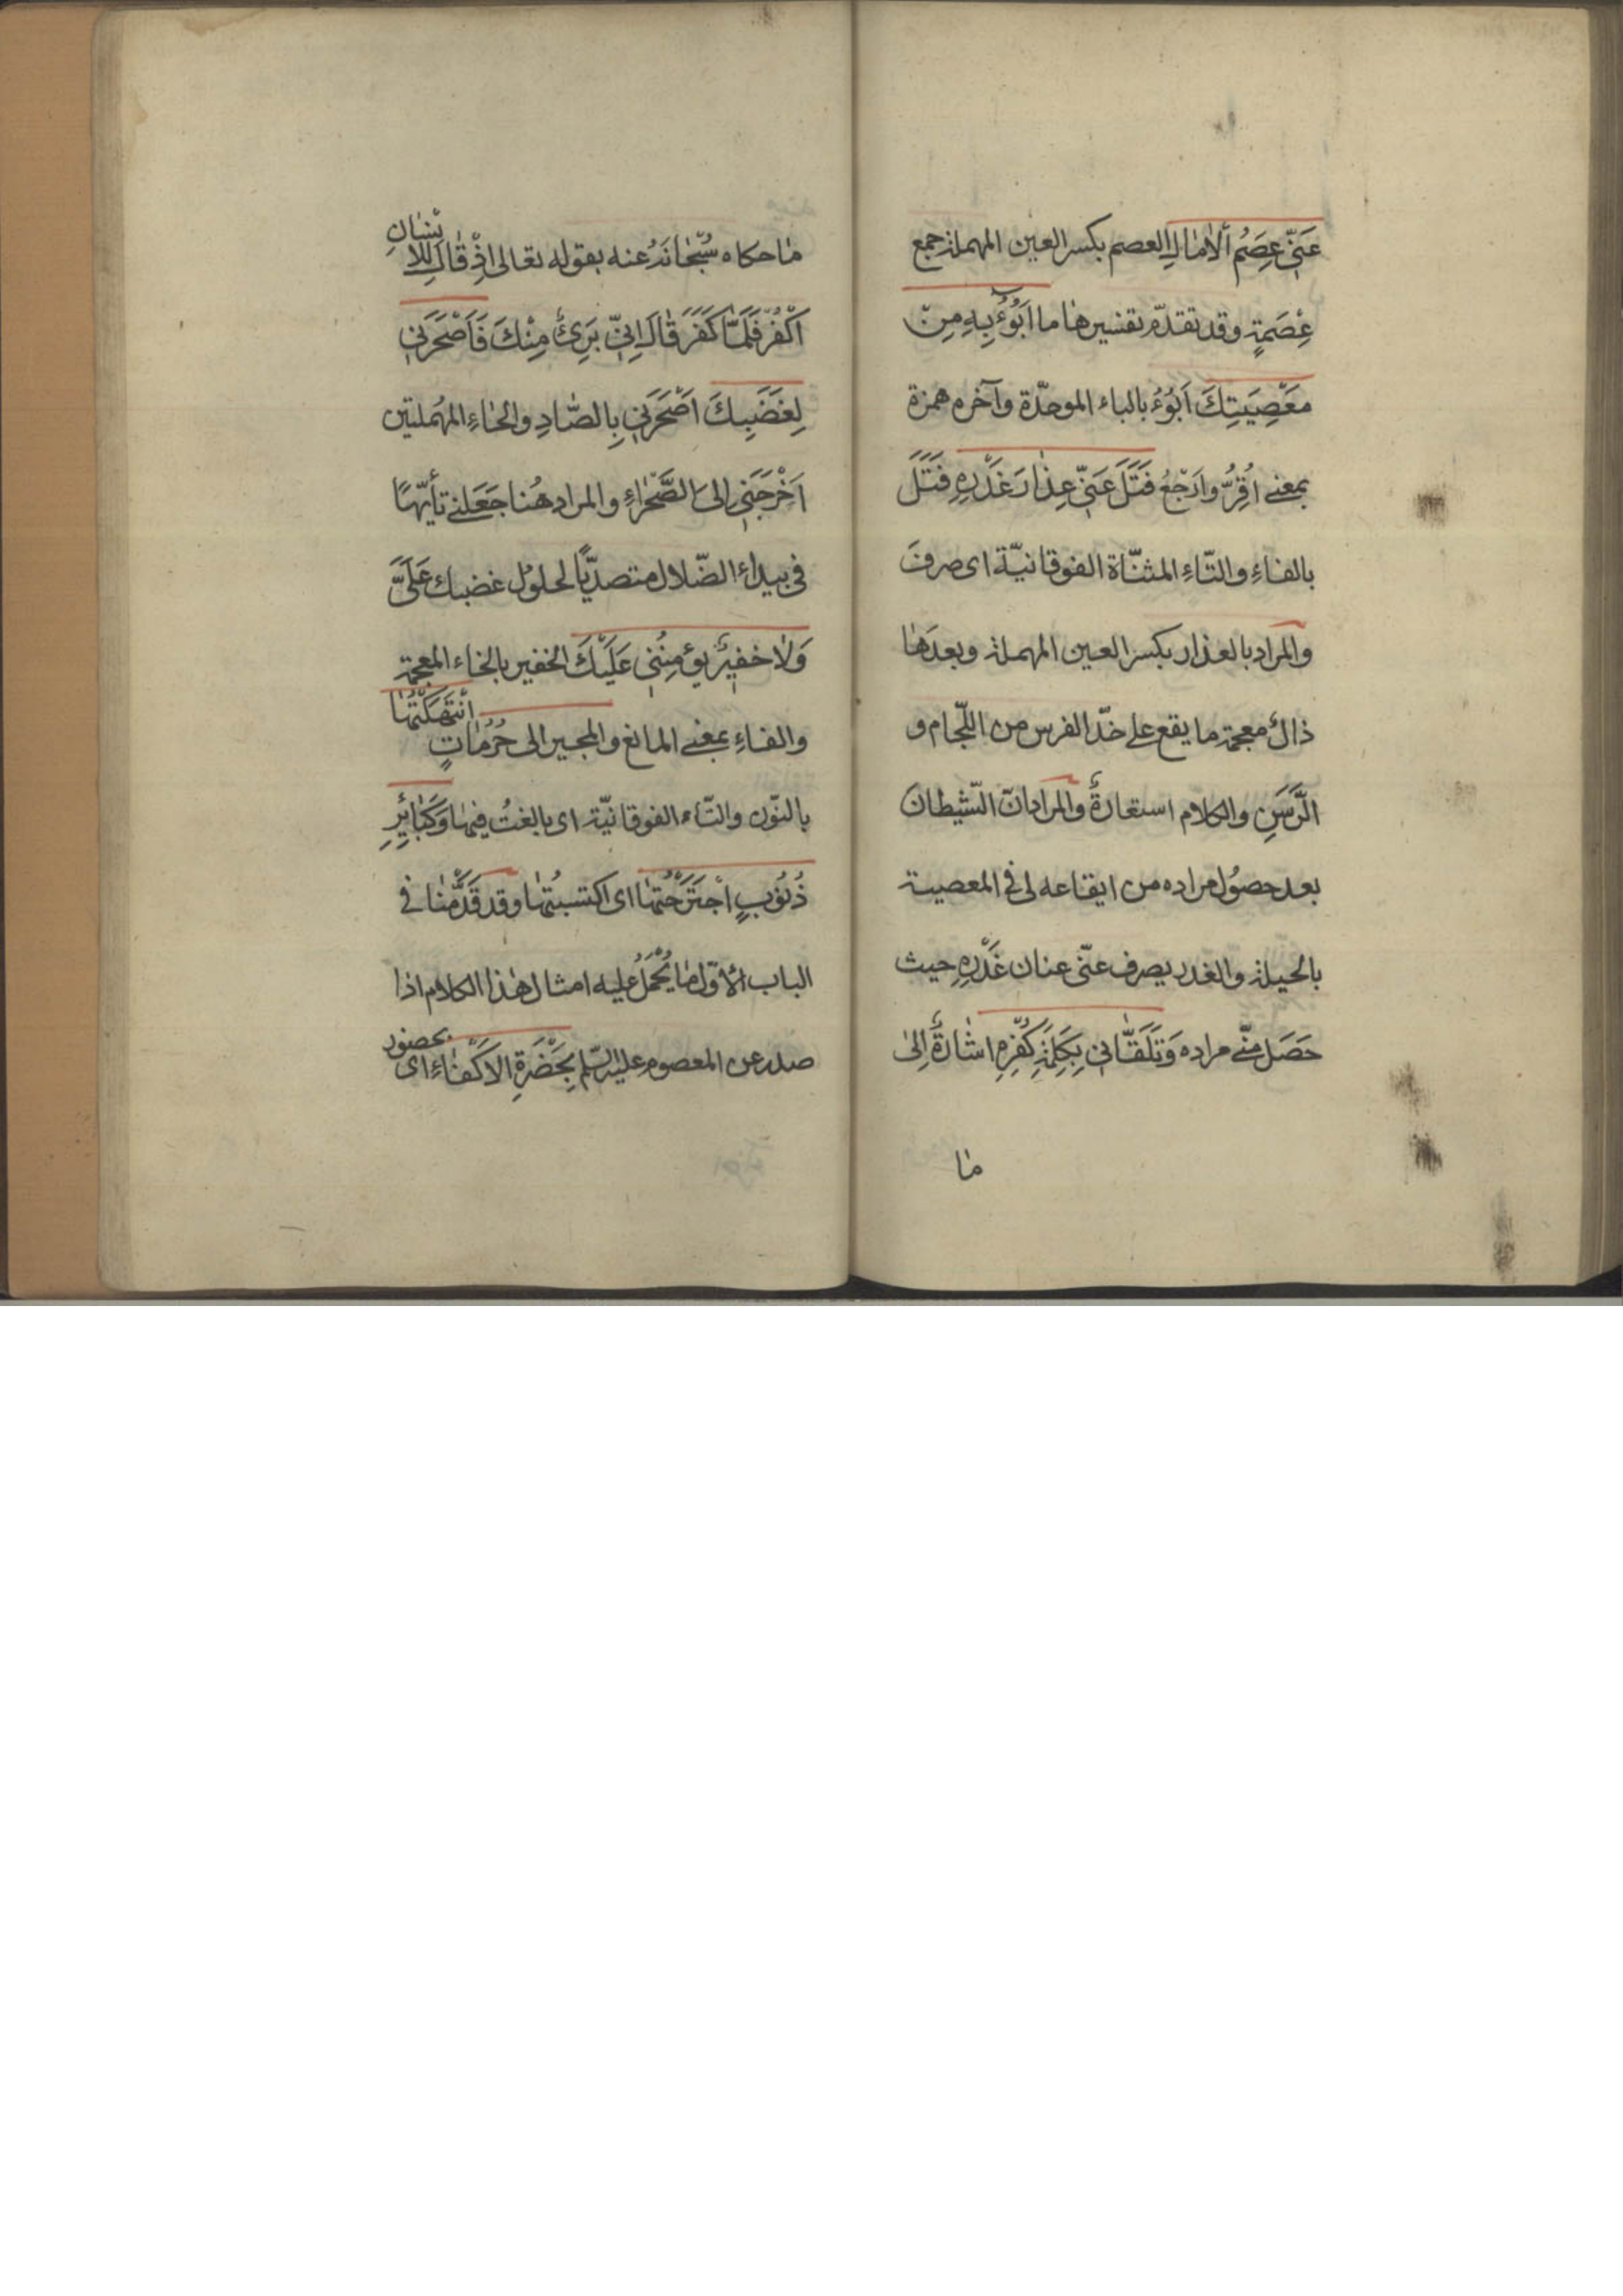 عَنّي عِصَمُ الآمالِ العصم بكسر العين المهملة جمع
عِصْمَةٍ وقد تقدّم تفسيرها ما اَبُوْءُ بِهِ مِنْ
مَعْصِيَتِكَ اَبُوْءُ بالباء الموحّدة وآخره همزة
بمعنى اُقِرُّ واَرْجُعُ فَتَلَ عَنّي عِذارَ غَدْرِهِ فَتَلَ
بالفاءِ والتّاءِ المثنّاة الفوقانيّة اى صرفَ
والمراد بالعذار بكسر العين المهملة وبعدَها
ذالٌ معجمة ما يقع على خدّ الفرس من اللّجام و
الرَّسَنِ والكلام استعارةٌ والمراد انّ الشّيطان
بعد حصُول مراده من ايقاعه لى فى المعصية
بالحيلة والغدر يصرف عنّى عنان غَدْرِهِ حيث
حَصَل منّى مراده وَتَلَقّٰانى بِكَلِمَةِ كُفْرِهِ اشٰارةٌ اِلىٰ
مٰا
مٰا حكاه سُبْحٰانَهُ عنه بقوله تعالى اِذْ قٰالَ لِلاِنْسٰانِ
اكْفُرْ فَلَمّا كَفَرَ قٰالَ اِنّي بَرِئٌ مِنْكَ فَاَصْحَرَني
لِغَضَبِكَ اَصْحَرَني بِالصّادِ والحٰاءِ المهُملتين
اَخْرَجَني اِلىَ الصَّحْرٰاءِ والمراد هُنا جَعَلنى تأئِهًا
فى بيداءِ الضّلال متصدّيًا لحلوُل غضبك عَلَىَّ
وَلاٰ خَفيرٌ يؤمِنُني عَلَيْكَ الخفير بالخاء المعجمة
والفاءِ بمعنى المانع والمجير الى حُرُمٰاتٍ انْتَهَكْتُهٰا
بالنّون والتّاء الفوقانيّة اى بالغتُ فيهٰا وَكَبٰائِرِ
ذُنُوبٍ اجْتَرَحْتُهٰا اى اكتسبتُهٰا وقد قَدَّمْنٰا فى
الباب الأوّل مٰا يُحْمَلُ عليه امثال هٰذا الكلام اذا
صدر عن المعصوم عليه السّلم بِحَضْرَةِ الاَكْفٰاءِ اى بحضور